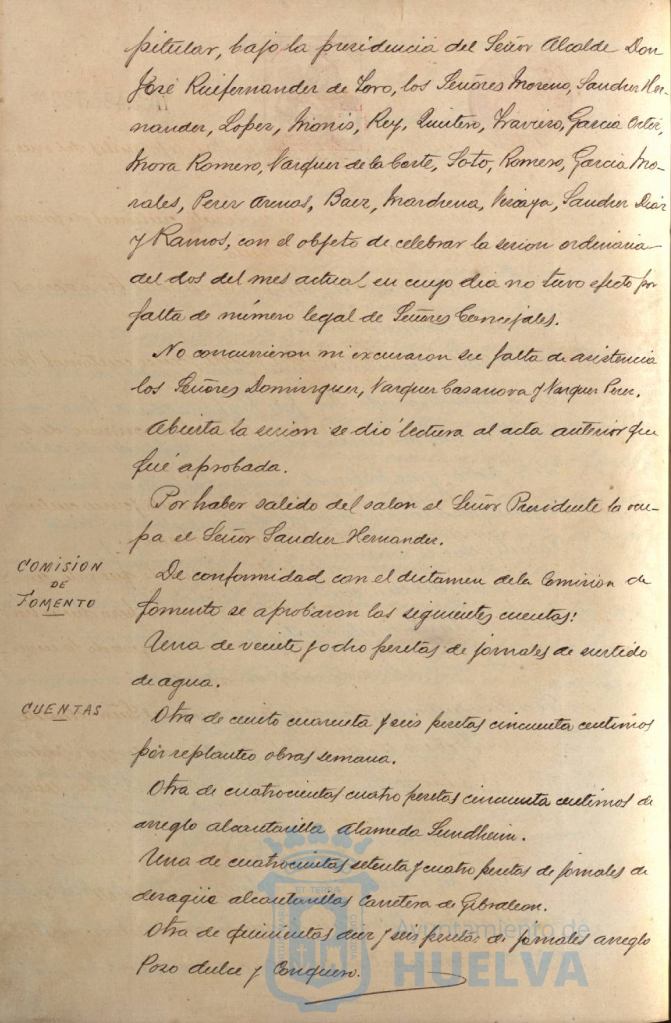 pitular, bajo la presidencia del Señor Alcalde Don
José Ruifernandez de Toro, los Señores Moreno, Sanchez Her-
nandez, Lopez, Monis, Rey, Quintero, Traviero, Garcia Ortiz,
Mora Romero, Vazquez de la Corte, Soto, Romero, Garcia Mo-
rales, Perez Arenas, Baez, Marchena, Vizcaya, Sanchez Diaz
y Ramos, con el objeto de celebrar la sesion ordinaria
del dos del mes actual, en cuyo dia no tuvo efecto por
falta de número legal de Señores Concejales.
No concurrieron ni excusaron su falta de asistencia
los Señores Dominguez, Vazquez Casanova y Vazquez Perez.
Abierta la sesion se dió lectura al acta anterior que
fué aprobada.
Por haber salido del salon el Señor Presidente la ocu-
pa el Señor Sanchez Hernandez.
COMISION
DE
FOMENTO
De conformidad con el dictamen de la Comision de
fomento se aprobaron las siguientes cuentas:
Una de veinte y ocho pesetas de jornales de surtido
de agua.
CUENTAS
Otra de ciento cuarenta y seis pesetas cincuenta centimos
por replanteo obras semana.
Otra de cuatrocientas cuatro pesetas cincuenta centimos de
arreglo alcantarilla Alameda Sundheim.
Una de cuatrocientas setenta y cuatro pesetas de jornales de
desagüe alcantarillas Carretera de Gibraleon.
Otra de quinientas diez y seis pesetas de jornales arreglo
Pozo dulce y Conquero.
Ayuntamiento de
HUELVA